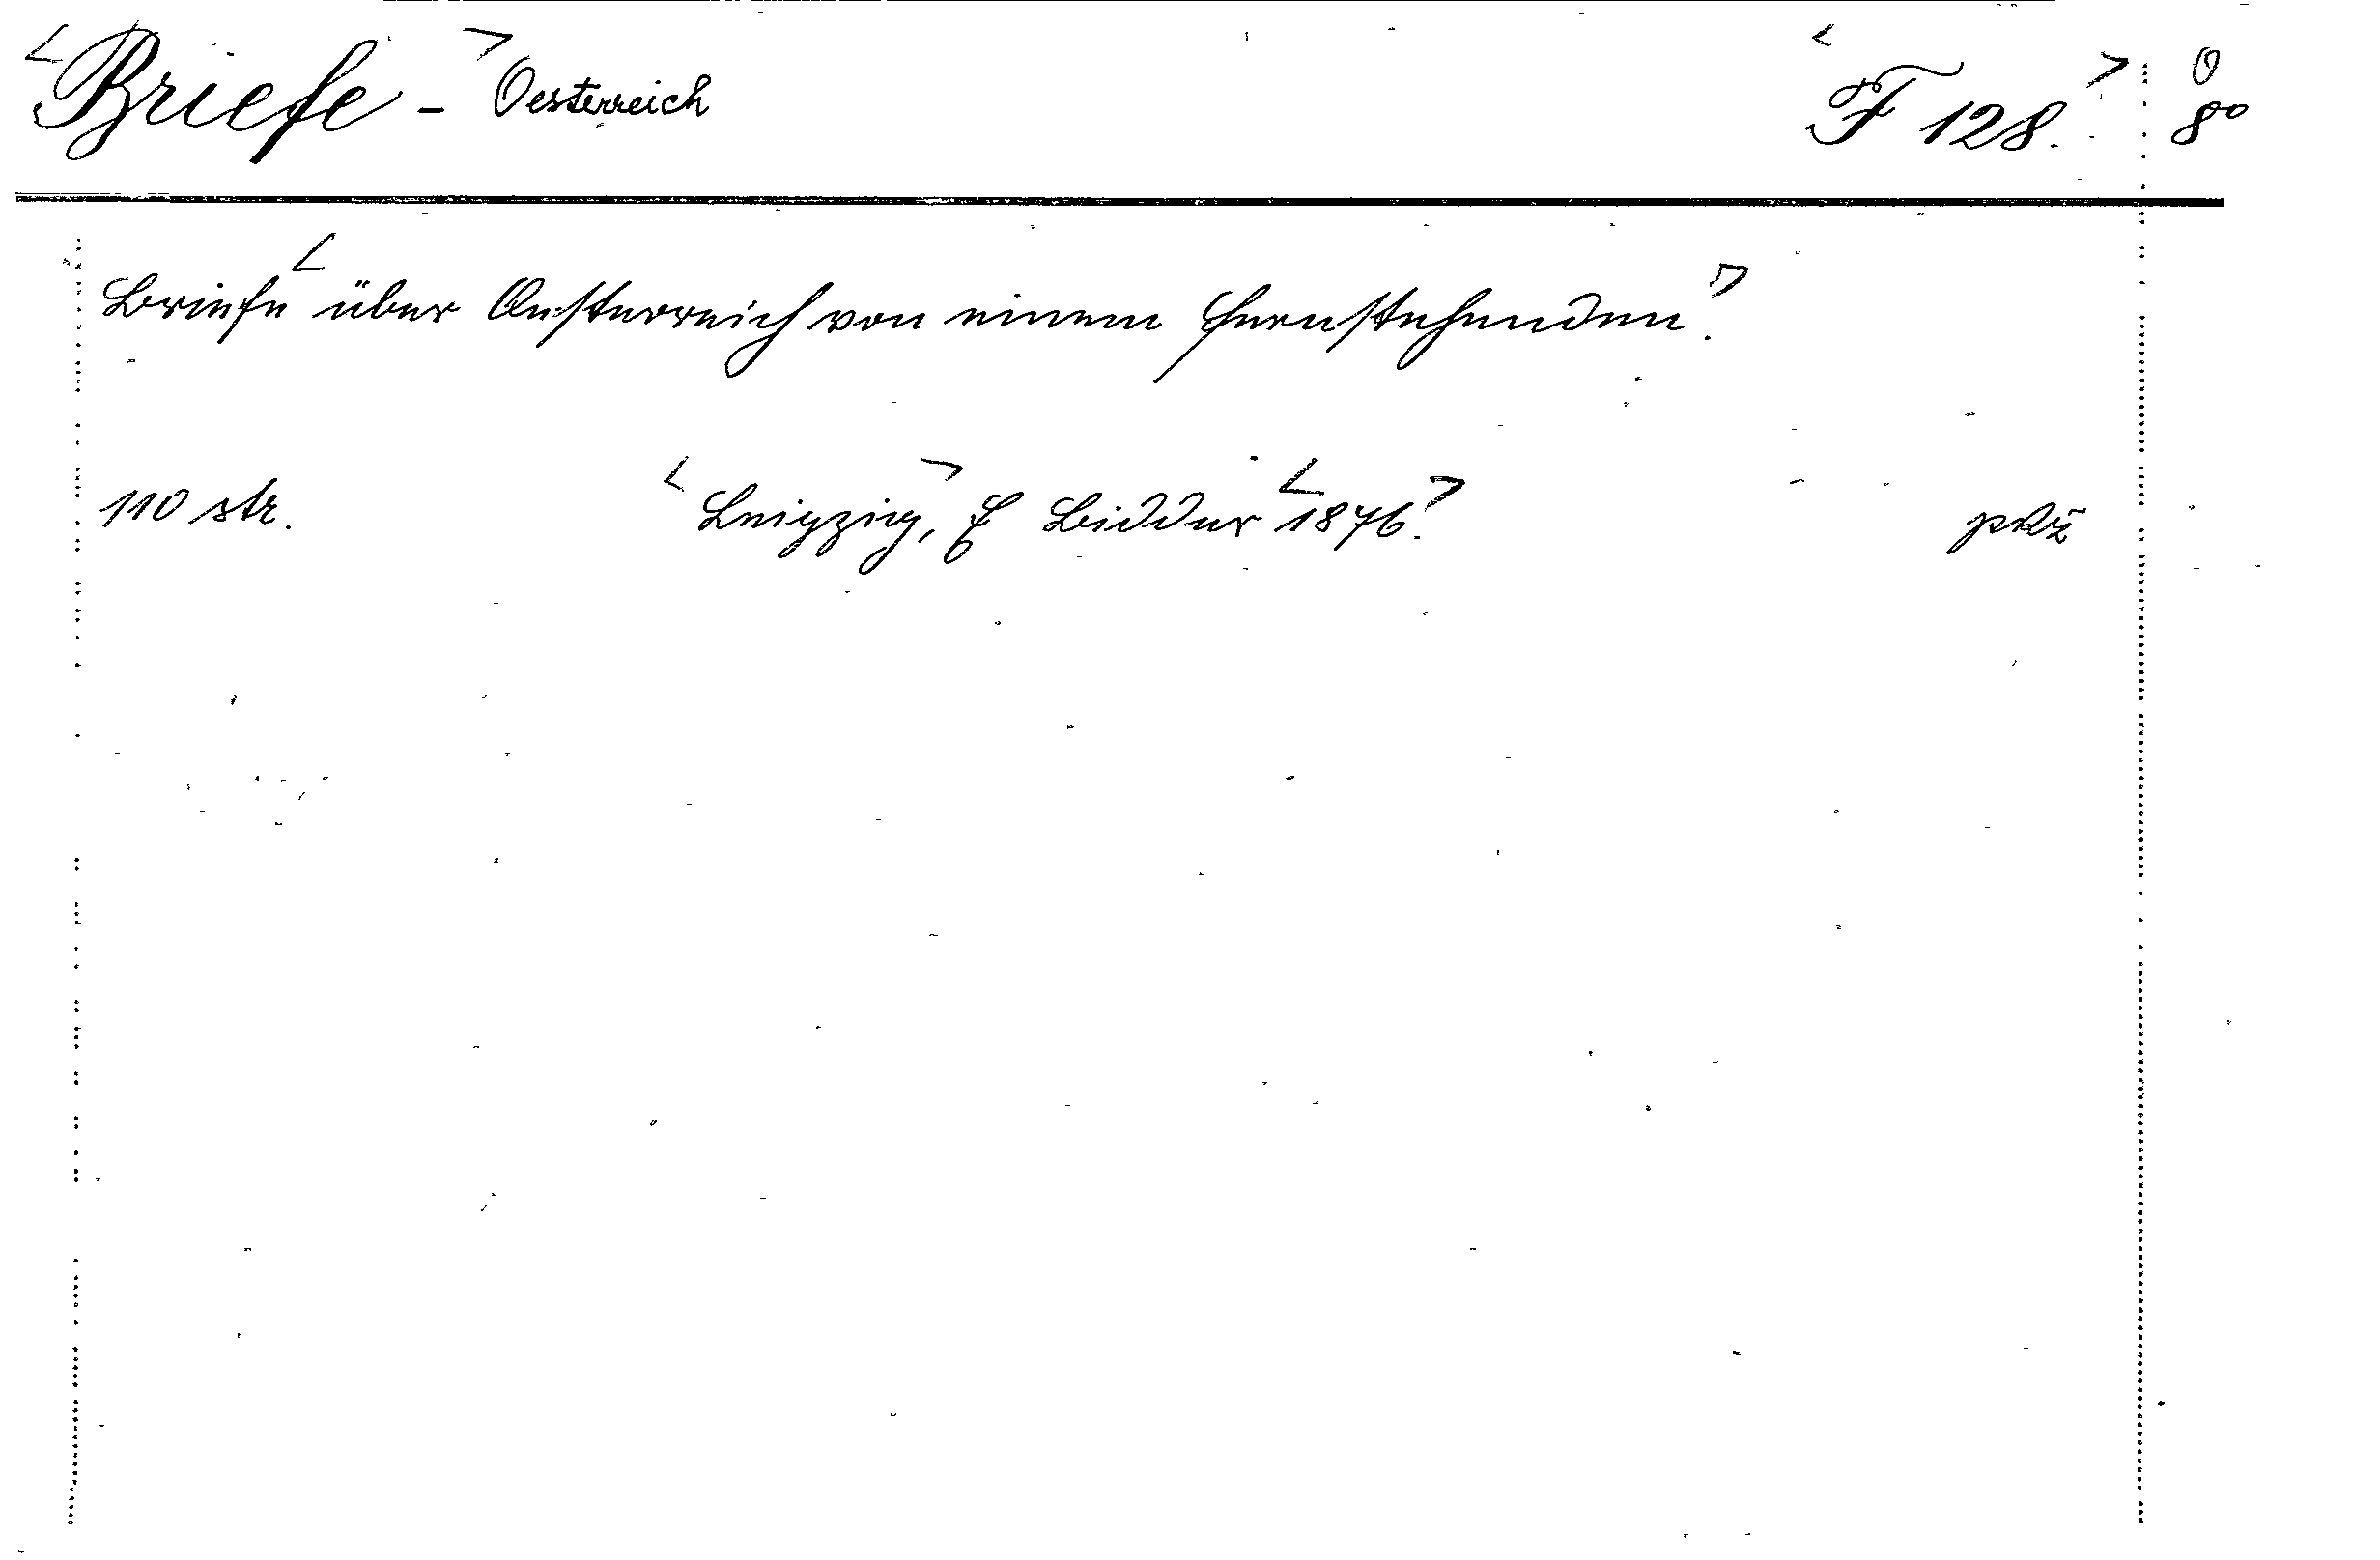 <Briefe -> Oesterreich <F 128.> O
8°
Briefe <über Oesterreich von einem Fernstehenden.>
110 str. <Leipzig,> E Bidder <1876.> pkž